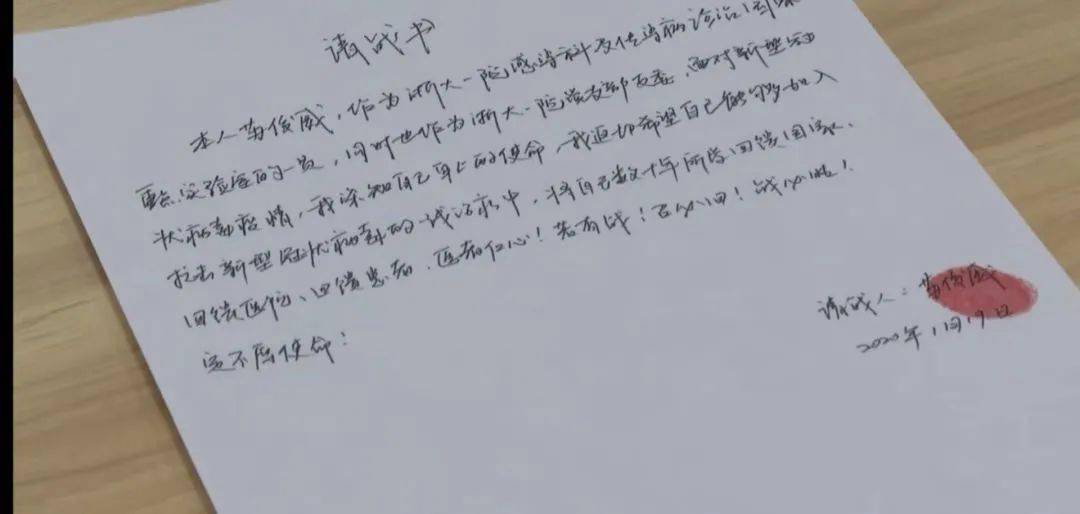 请战书
本人苗俊威，作为浙大一院感染科及传染病诊治国家
重点实验室的一员，同时也作为浙大一院党支部支委，面对新型冠
状病毒疫情，我深知自己身上的使命，我迫切希望自己能够加入
抗击新型冠状病毒的战役中，将自己数十年所学回馈国家、
回馈医院、回馈患者，医者仁心！若有战！召必回！战必胜！
定不辱使命！
请战人：苗俊威
2020年1月19日